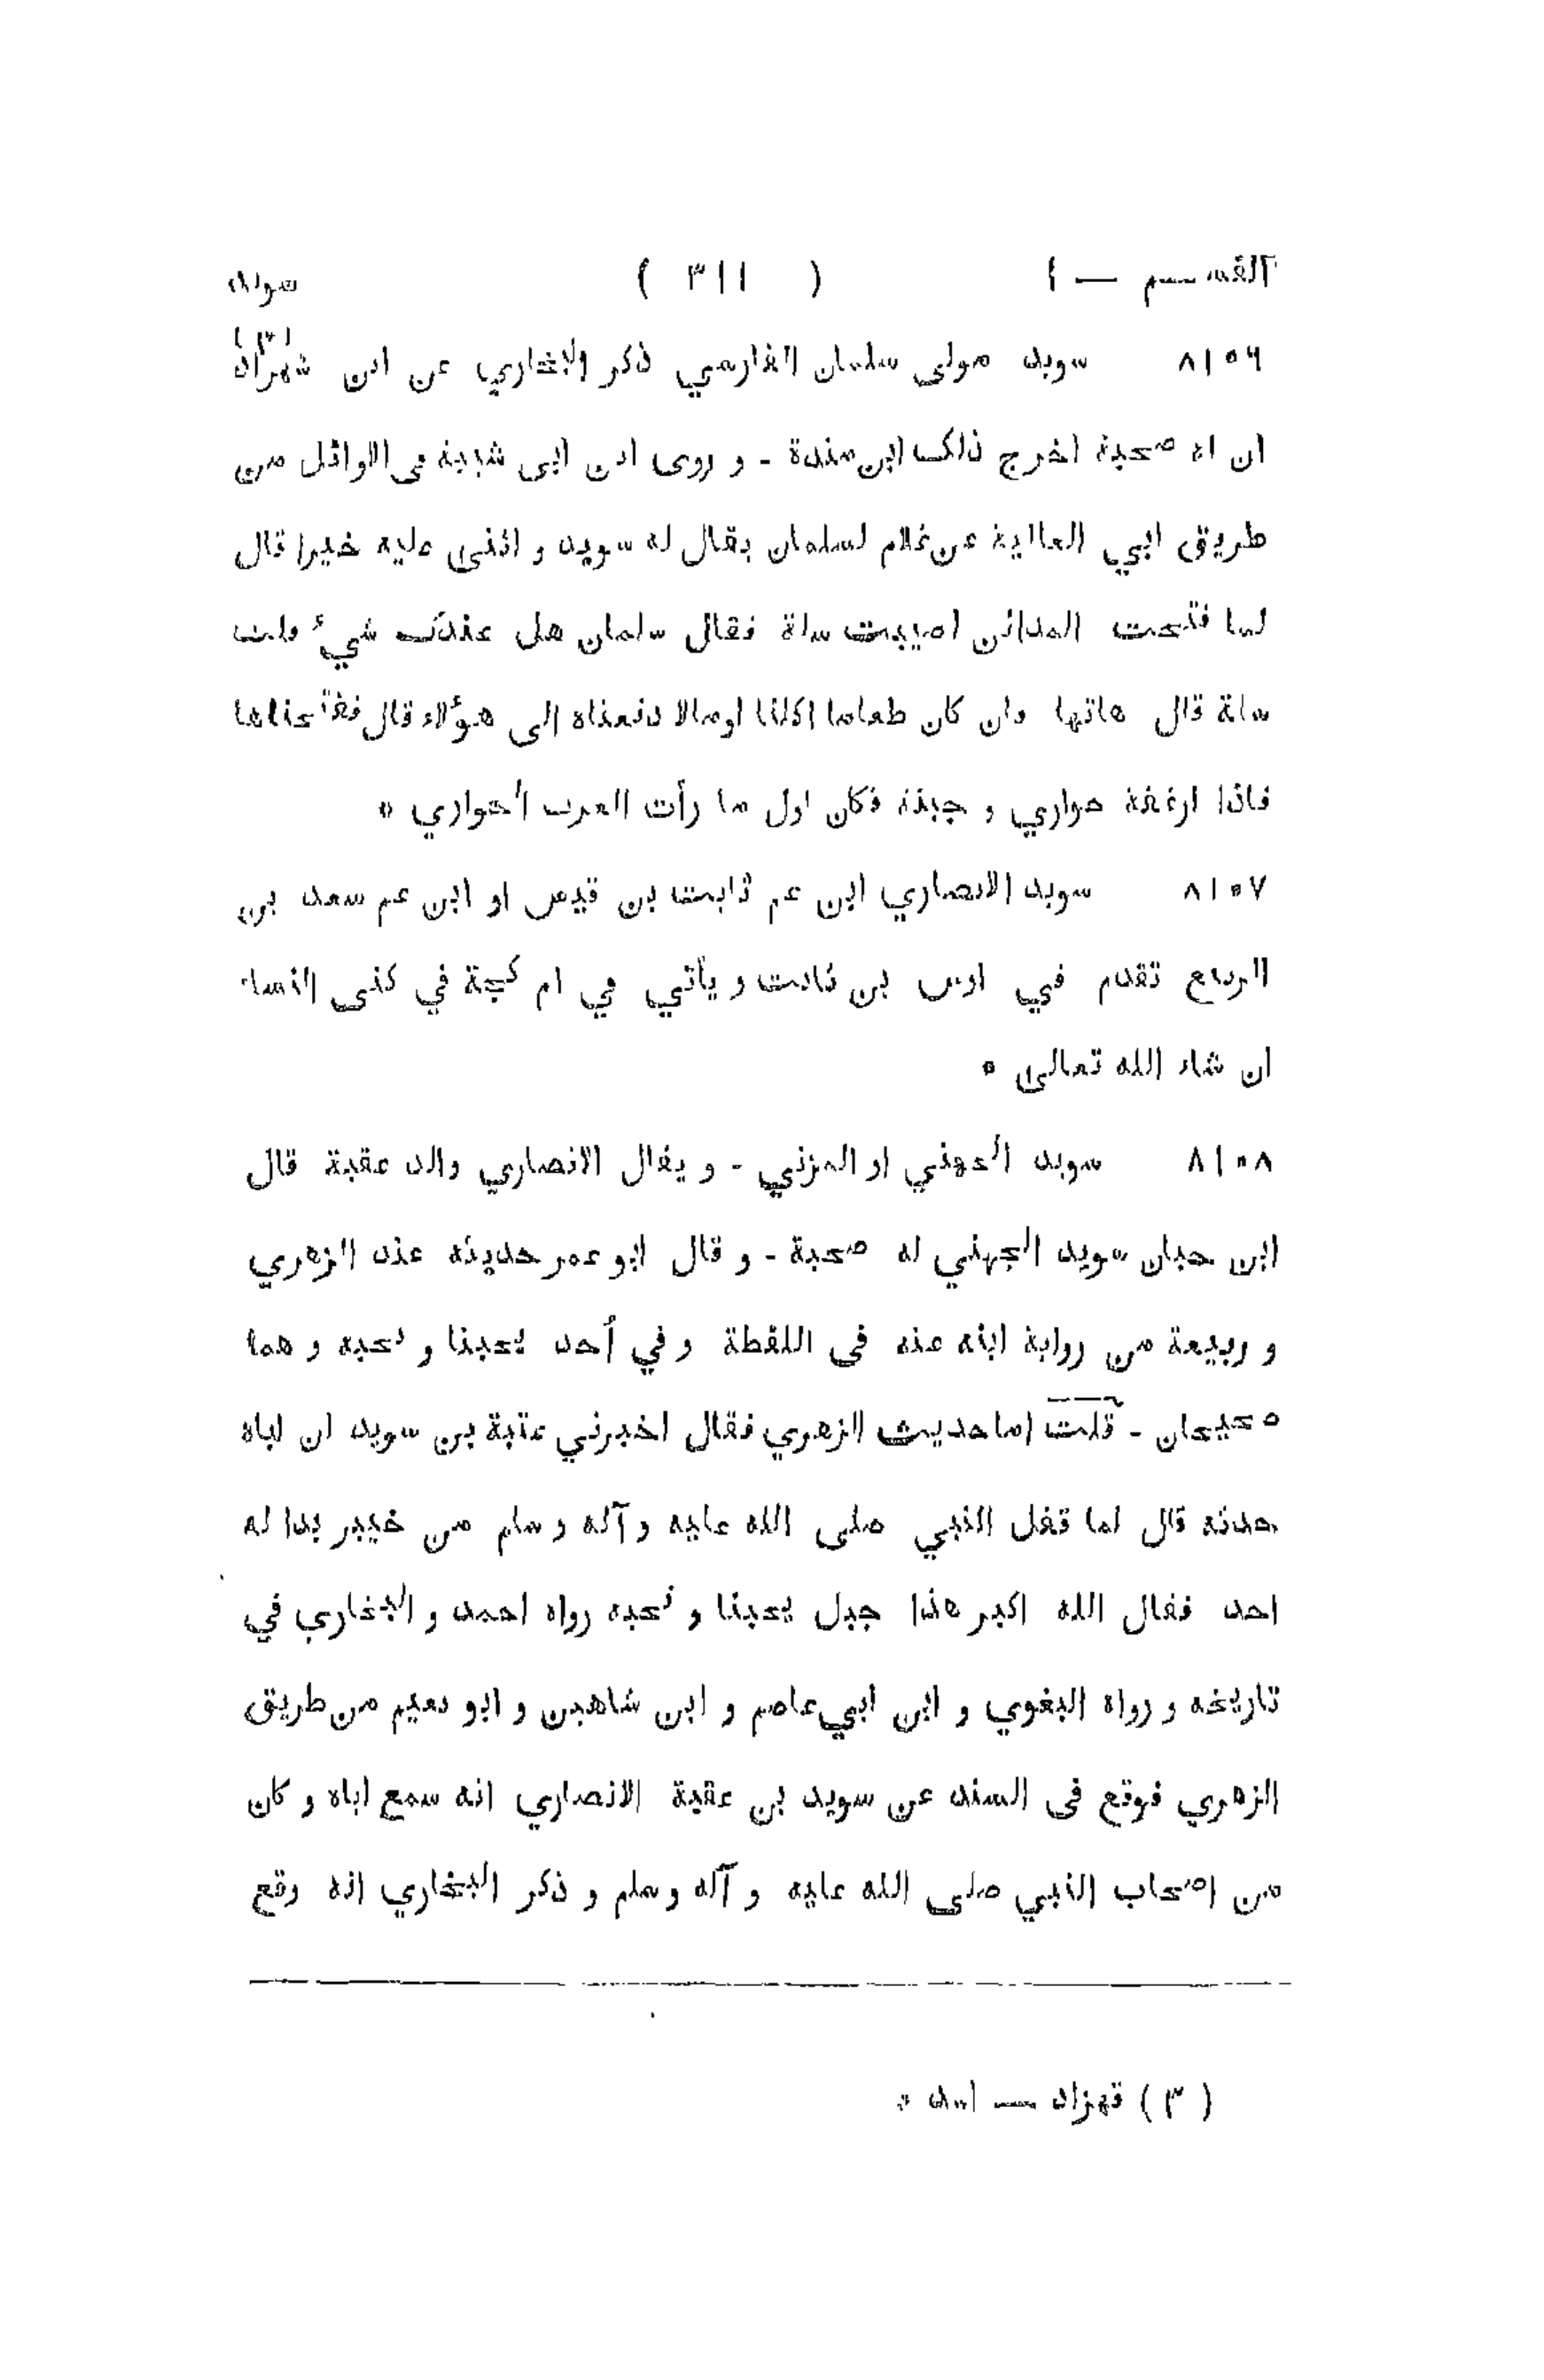 القسم — ١ ( ٣١١ ) سويد
٨١٥٦ سويد مولى سلمان الفارسي ذكر البخاري عن ابن شهراد (٣)
ان له صحبة اخرج ذلك ابن مندة - و روى ابن ابى شيبة فى الاوائل من
طريق ابي العالية عن غلام لسلمان يقال له سويد و اثنى عليه خيرا قال
لما فتحت المدائن اصيبت سلة فقال سلمان هل عندك شيء قلت
سلة قال هاتها فان كان طعاما اكلنا اومالا دفعناه الى هؤلاء قال ففتحناها
فاذا ارغفة حواري و جبنة فكان اول ما رأت العرب الحواري *
٨١٥٧ سويد الانصاري ابن عم ثابت بن قيس او ابن عم سعد بن
الربيع تقدم في اوس بن ثابت و يأتي في ام كجة في كنى النساء
ان شاء الله تعالى *
٨١٥٨ سويد الجهني او المزني - و يقال الانصاري والد عقبة قال
ابن حبان سويد الجهني له صحبة - و قال ابو عمر حديثه عند الزهري
و ربيعة من رواية ابنه عنه فى اللقطة و في أحد يحبنا و نحبه و هما
صحيحان - قلت اما حديث الزهري فقال اخبرني عتبة بن سويد ان اباه
حدثه قال لما قفل النبي صلى الله عليه و آله و سلم من خيبر بدا له
احد فقال الله اكبر هذا جبل يحبنا و نحبه رواه احمد و البخاري في
تاريخه و رواه البغوي و ابن ابي عاصم و ابن شاهين و ابو نعيم من طريق
الزهري فوقع فى السند عن سويد بن عقبة الانصاري انه سمع اباه و كان
من اصحاب النبي صلى الله عليه و آله و سلم و ذكر البخاري انه وقع
( ٣ ) قهزاد — اسد *